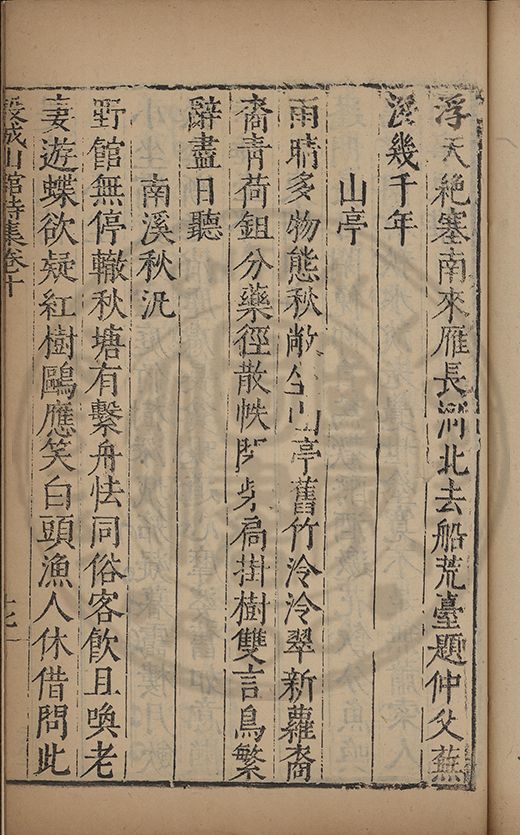 浮天絶塞南來雁長河北去船荒臺題仲父蕪
沒幾千年
山亭
雨晴多物態秋敞山亭舊竹泠泠翠新蘿裔
裔青荷鉏分藥徑散帙扃掛樹雙言鳥繁
辭盡日聽
南溪秋汎
野館無停轍秋塘有繫舟怯同俗客飲且喚老
妻遊蝶欲疑紅樹鷗應笑白頭漁人休借問此
穀城山館詩集卷十